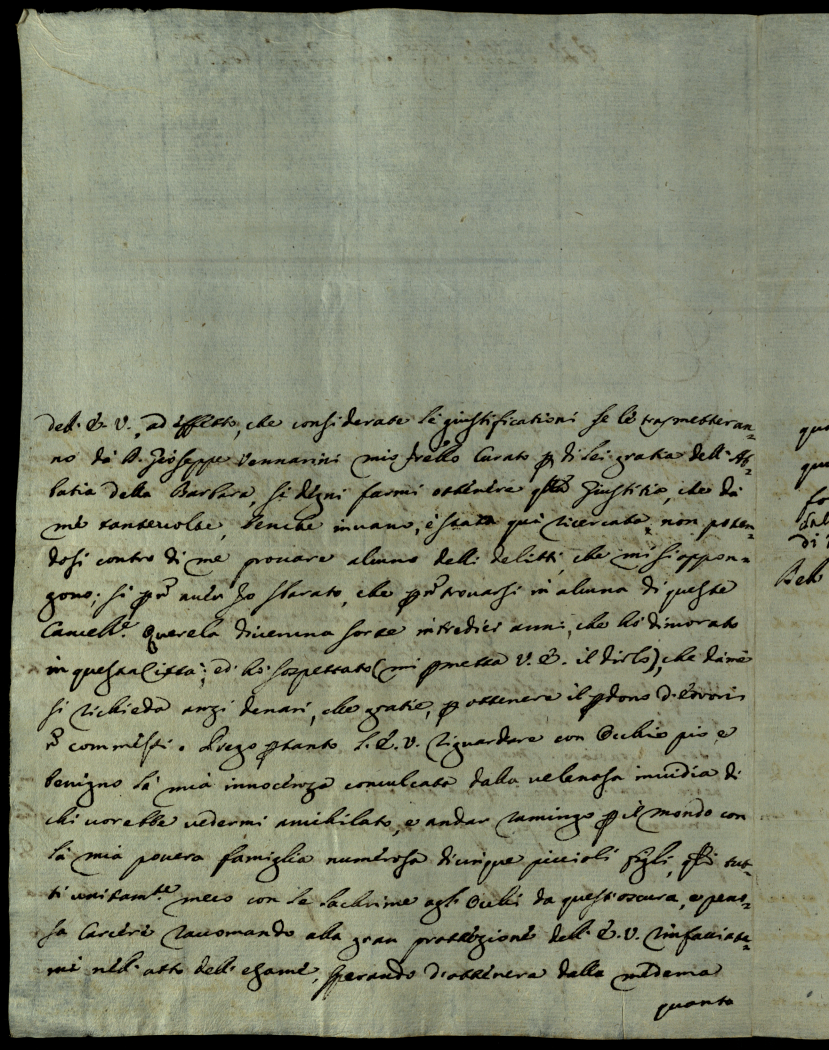 dell'E. V., ad effetto, che considerate le giustificationi se le trasmetteran=
no da D. Gioseppe Vennarini mio frello Curato p di lei gratia dell'Ab=
batia della Barbara, si degni farmi ottenere qsta Giustitia, che da
me tantevolte, benche invano, è stata qui ricercata, non poten=
dosi contro di me provare alcuno delli delitti, che mi si oppon=
gono; si p nò aver Io sfarato, che p nò trovarsi in alcuna di queste
Cancellrie Querela diveruna sorte intredici anni, che hò dimorato
in questa Città; ed hò sospettato (mi pmetta V. E. il dirlo), che dàme
si richieda anzi denari, che gratie, p ottenere il pdono d'errori
nò commessi. Prego ptanto l'E. V. riguardare con Occhio pio, e
benigno la mia innocenza conculcata dalla velenosa invidia di
chi vorebbe vedermi annihilato, e andar ramingo p il mondo con
la mia povera famiglia numerosa dicinque piccioli figli, qsti tut=
ti unitamte meco con le lachrime agl'Occhi da quest'oscura, e peno=
sa Carcere raccomando alla gran protezzione dell'E. V. rinfacciate=
mi nell'atto dell'esame, sperando d'ottenere dalla medema
quanto
qua
que
fo
di
Bell